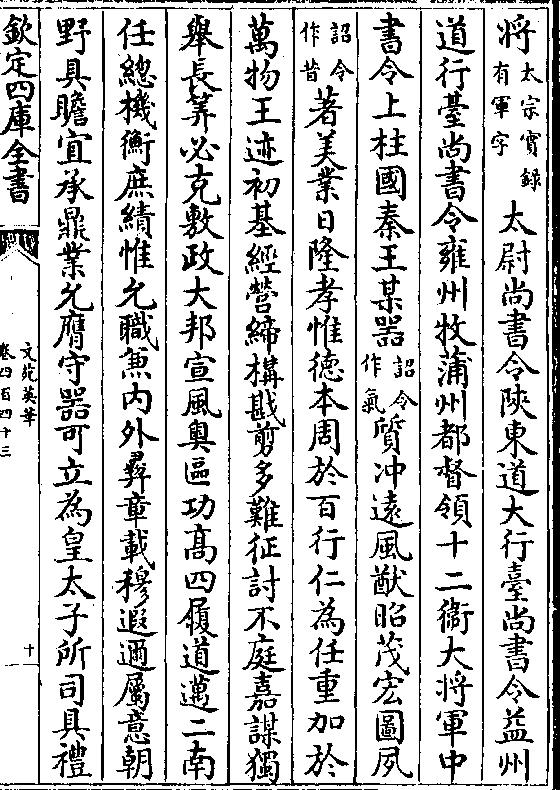 將太宗實錄有軍字太尉尚書令陜東道大行臺尚書令益州
道行臺尚書令雍州牧蒲州都督領十二衛大將軍中
書令上柱國秦王某器詔令作氣質沖遠風猷昭茂宏圖夙
詔令作昔著美業日隆孝惟德本周於百行仁為任重加於
萬物王迹初基經營締構戡剪多難征討不庭嘉謀獨
舉長筭必克敷政大邦宣風奧區功髙四履道邁二南
任總機衡庶績惟允職兼内外彛章載穆遐邇屬意朝
野具瞻宜承鼎業允膺守器可立為皇太子所司具禮
欽定四庫全書
文苑英華
卷四百四十三
十一